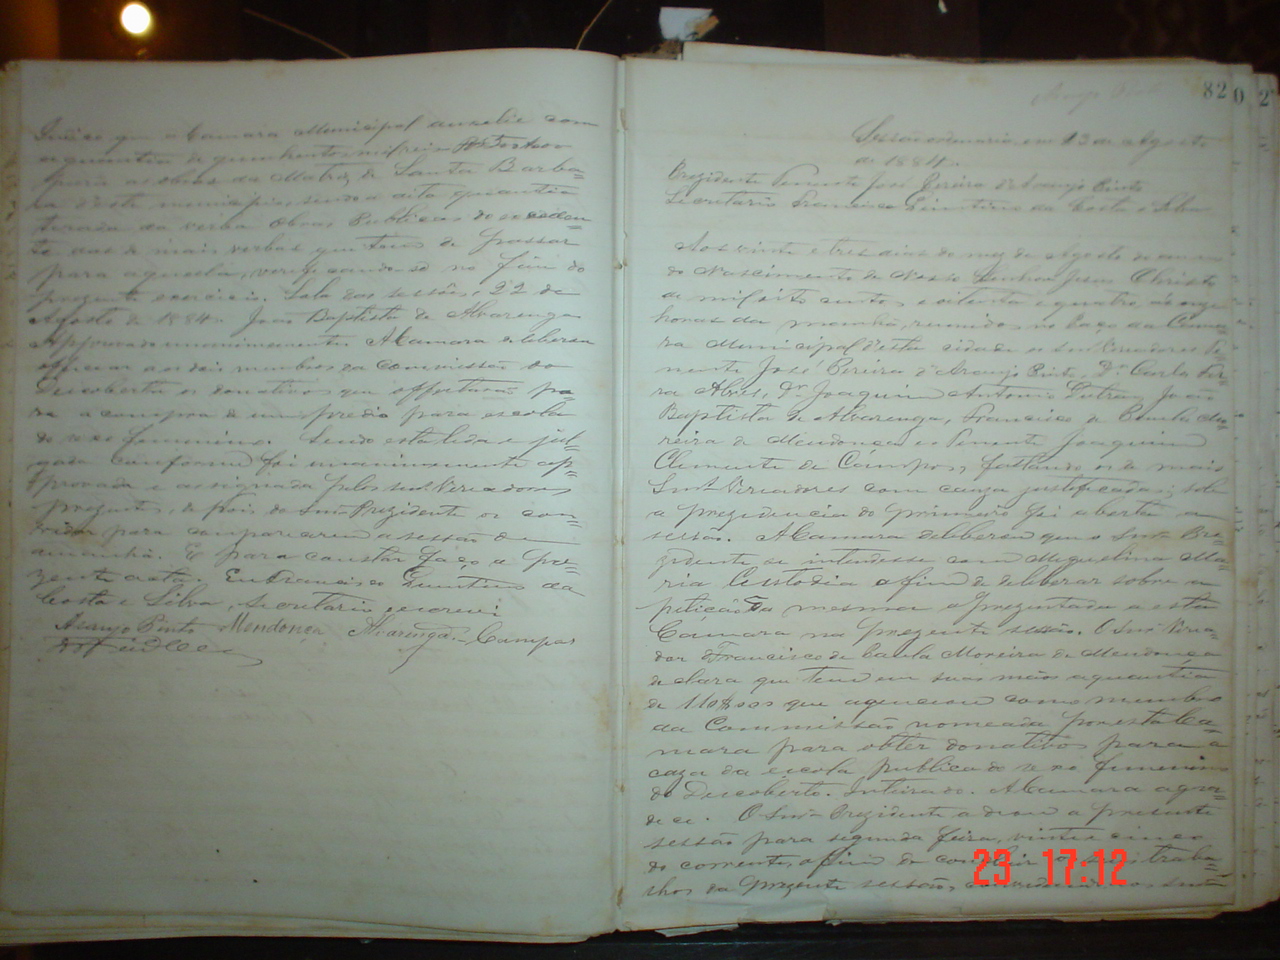 Indico que a Camara Municipal auxilie com
a quantia de quinhentos mil reis
para as obras da Matriz de Santa Barba-
ra d'este municipio, sendo a dita quantia
tirada da verba Obras Publicas do exceden-
te das de mais verbas que tem de passar
para aquella, verificando-se no fim do
prezente exercicio. Sala das sessões, 22 de
Agosto de 1884. João Baptista de Alvarenga
Approvado unanimemente. A Camara deliberou
officiar aos dois membros da commissão do
Descoberto os donativos que offertarão pa-
ra a compra de um predio para escola
do sexo femenino. Sendo esta lida e jul-
gada conforme foi unanimemente ap-
provada e assignada pelos snrs. Vereadores
prezentes, depois do Snr. Prezidente os con-
vidar para comparecerem a sessão de
amanhã. E para constar faço a pre-
zente acta. Eu Francisco Quintino da
Costa e Silva, Secretario escrevi
Araujo Pinto Mendonça Alvarenga Campos
82
Sessão ordinaria em 23 de Agosto
de 1884.
Prezidente Tenente José Pereira d'Araujo Pinto
Secretario Francisco Quintino da Costa e Silva
Aos vinte e tres dias do mez de Agosto do anno
do Nascimento de Nosso Senhor Jesus Christo
de mil oito centos e oitenta e quatro, ás onze
horas da manhã, reunidos no Paço da Cama-
ra Municipal d'esta cidade os snrs. Vereadores Te-
nente José Pereira d'Araujo Pinto, Dr. Carlo
Alves, Dr. Joaquim Antonio Dutra, João
Baptista de Alvarenga, Francisco de Paula Mo-
reira de Mendonça e Tenente Joaquim
Clemente de Campos, faltando os de mais
Snrs. Vereadores com cauza justificada; sob
a prezidencia do primeiro foi aberta a
sessão. A Camara deliberou que o Snr. Pre-
zidente se intendesse com Miquelina Ma-
ria Custodia afim de deliberar sobre a
petição da mesma aprezentada a esta
Camara na prezente sessão. O Snr. Verea-
dor Francisco de Paula Moreira de Mendonça
declara que tem em suas mãos a quantia
de que agenciou como membro
da Commissão nomeada por esta Ca-
mara para obter donativos para a
caza da escola publica do sexo femenino
do Descoberto. Inteirado. A Camara agra-
dece. O Snr. Prezidente adiou a prezente
sessão para segunda feira, vinte e cinco
do corrente, afim de concluir os traba-
lhos da prezente sessão, convidando aos snrs.
23 17:12